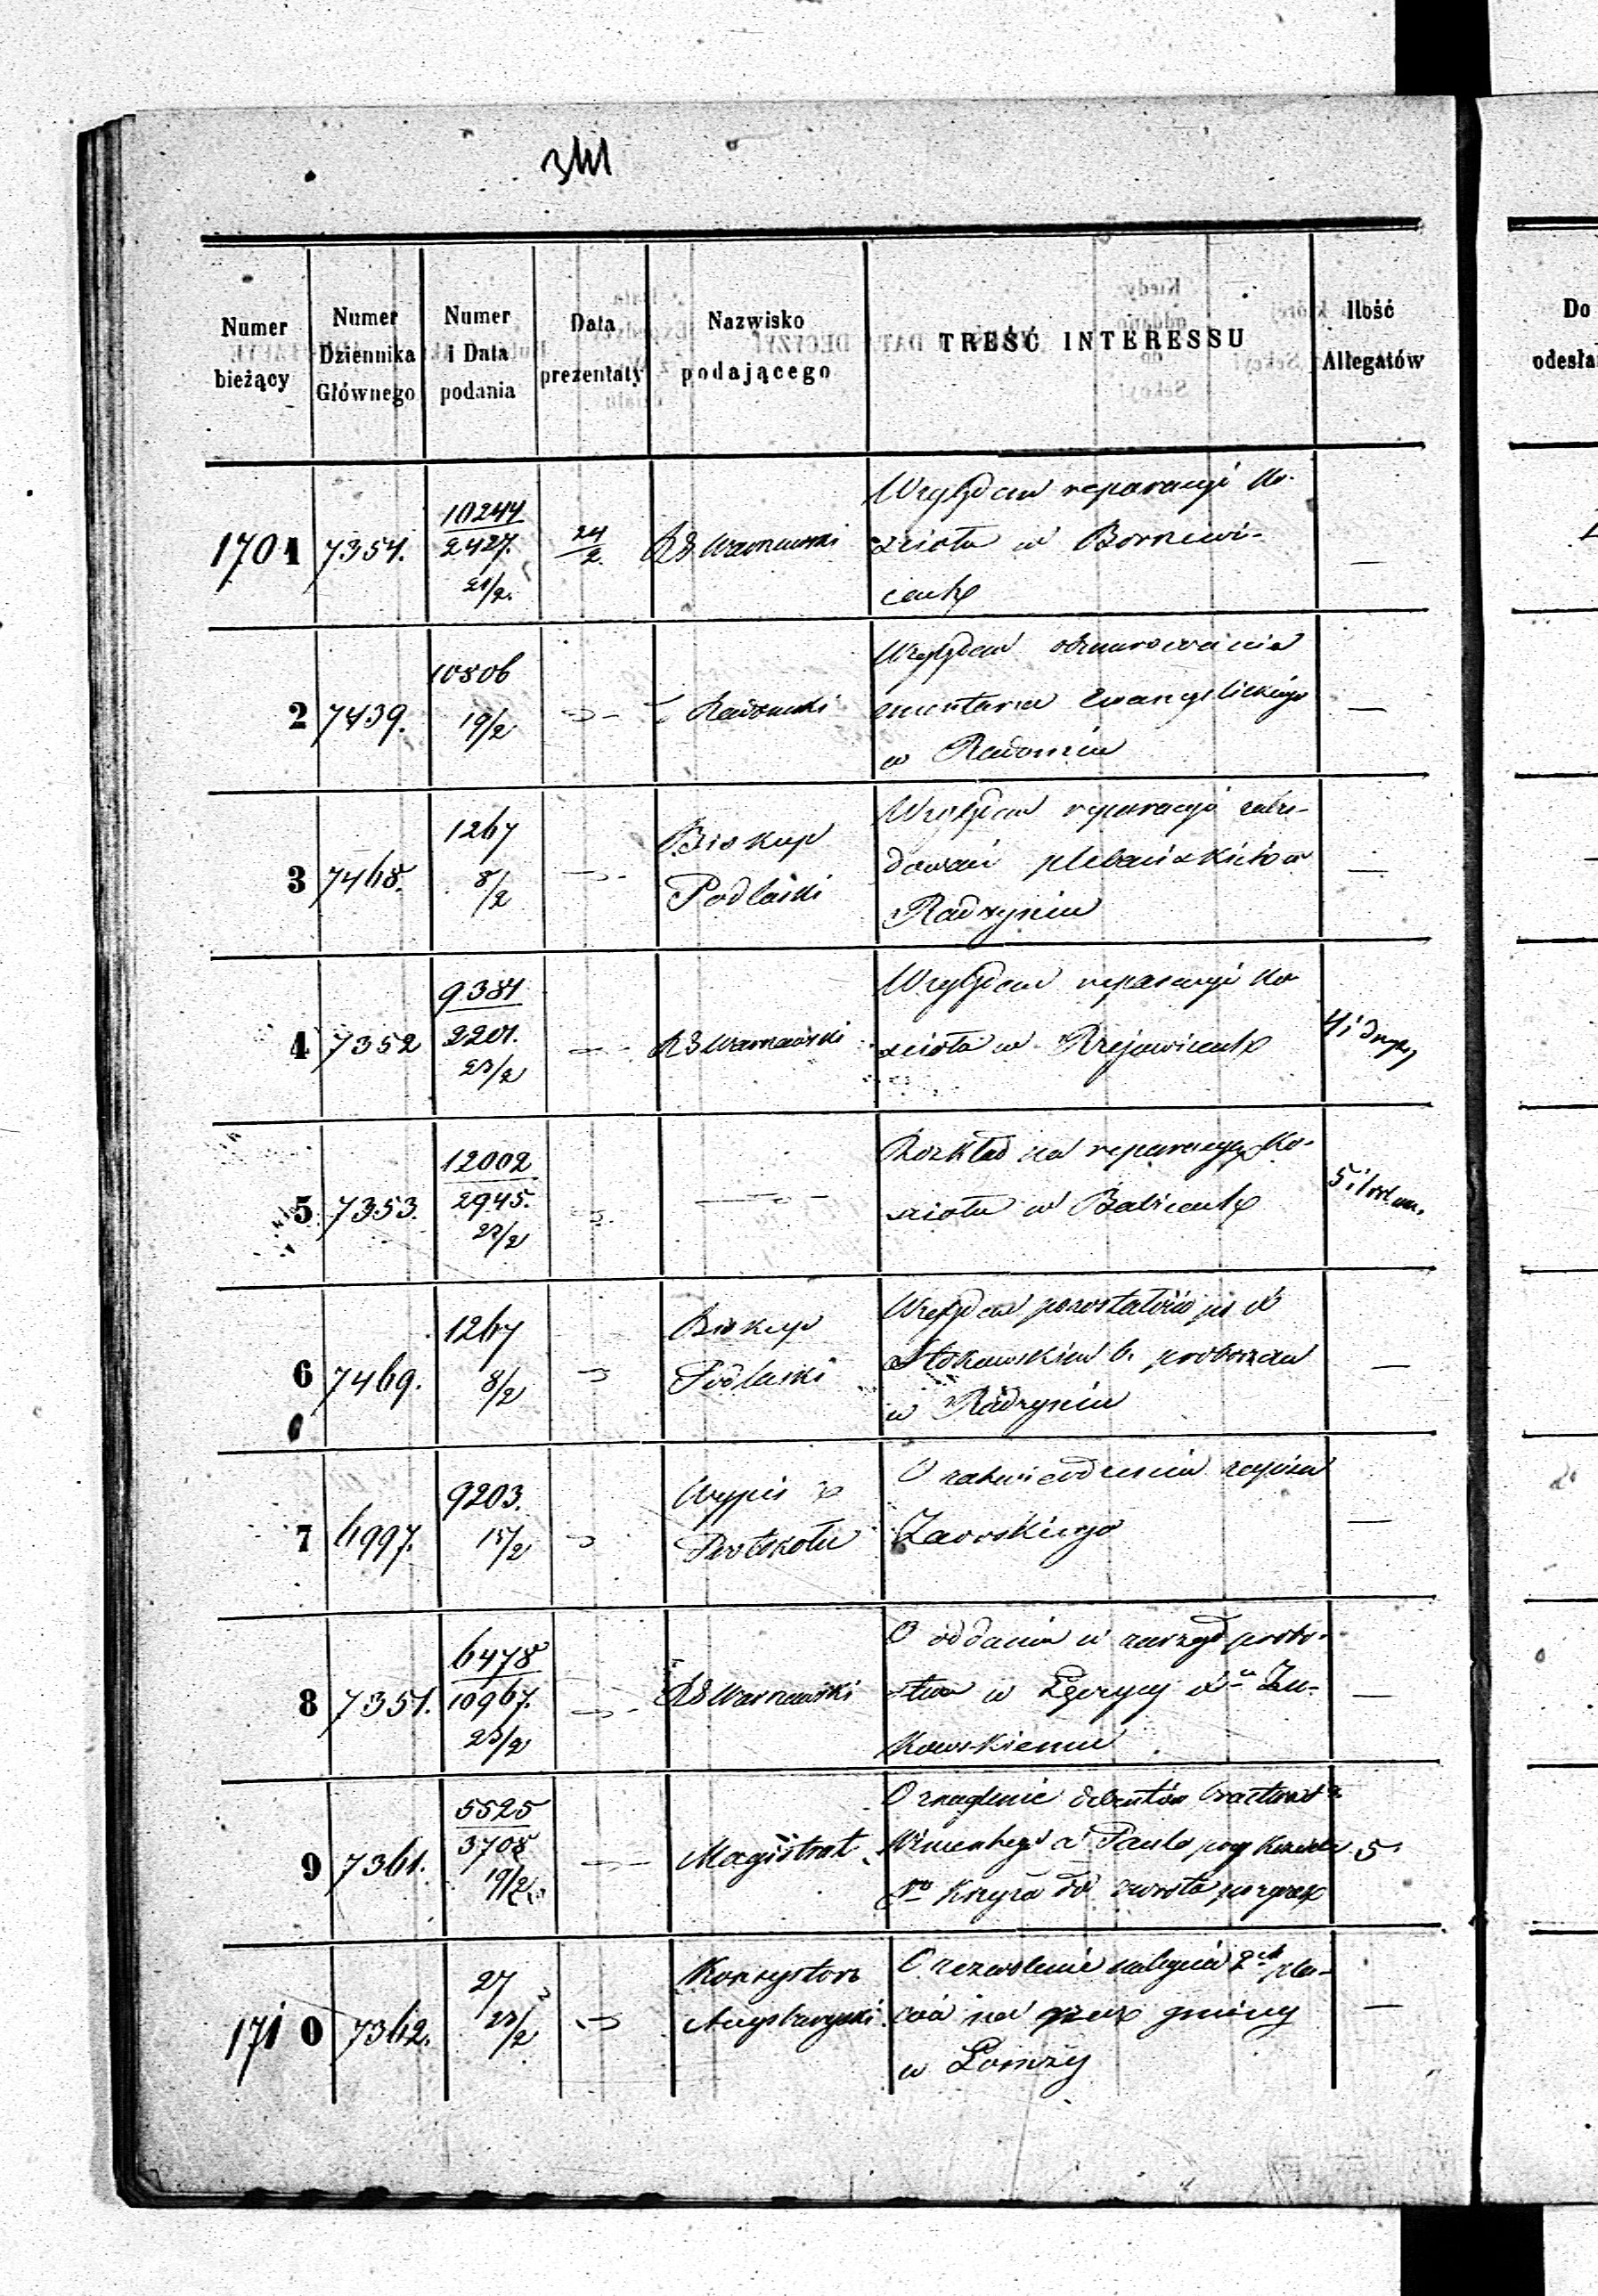 Numer bieżący
Numer Dziennika Głównego
Numer i Data podania
Data prezentaty
Nazwisko podającego
TREŚĆ INTERESSU
Ilość Allegatów
Do
odesła
1701
7354.
10244
2427.
21/2.
24
2.
RG Warszawski
Względem reparacyi Ko-
ścioła w Borzewi-
cach
—
2
7439.
10806
19/2
Radomski
Względem obmurowania
cmentarza Ewangelickiego
w Radomiu
—
3
7468.
1267
8/2
Biskup
Podlaski
Względem reparacyi zabu-
dowań plebańskich w
Radzyniu
—
4
7352
9381
2201.
23/2
RG Warszawski
Względem reparacyi Ko
ścioła w Krzejowicach
4 i
5
7353.
12002
2945.
23/2
Rozkład na reparacyę Ko-
ścioła w Babicach
5 i
6
7469.
1267
8/2
Biskup
Podlaski
Względem pozostałości po X
b. proboszczu
w Radzyniu
—
7
6997.
9203.
15/2
Wypis z
Protokołu
O zatwierdzenie zapisu
Zaorskiego
—
8
7351.
6478
10967.
23/2
RG Warszawski
O oddanie w zarząd probo-
stwa w Łęczycy Xu Żu-
kowskiemu
—
9
7361.
5525
3708
19/2
Magistrat
O znaglenie debentów bractwa Sgo
Wincentego a Paulo przy Kościele
Sgo Krzyża do zwrotu
5.
1710
7362.
27
23/2
Konsystorz
Augsburgski
O zezwolenie nabycia 2ch pla-
ców na rzecz gminy
w Łomży
—